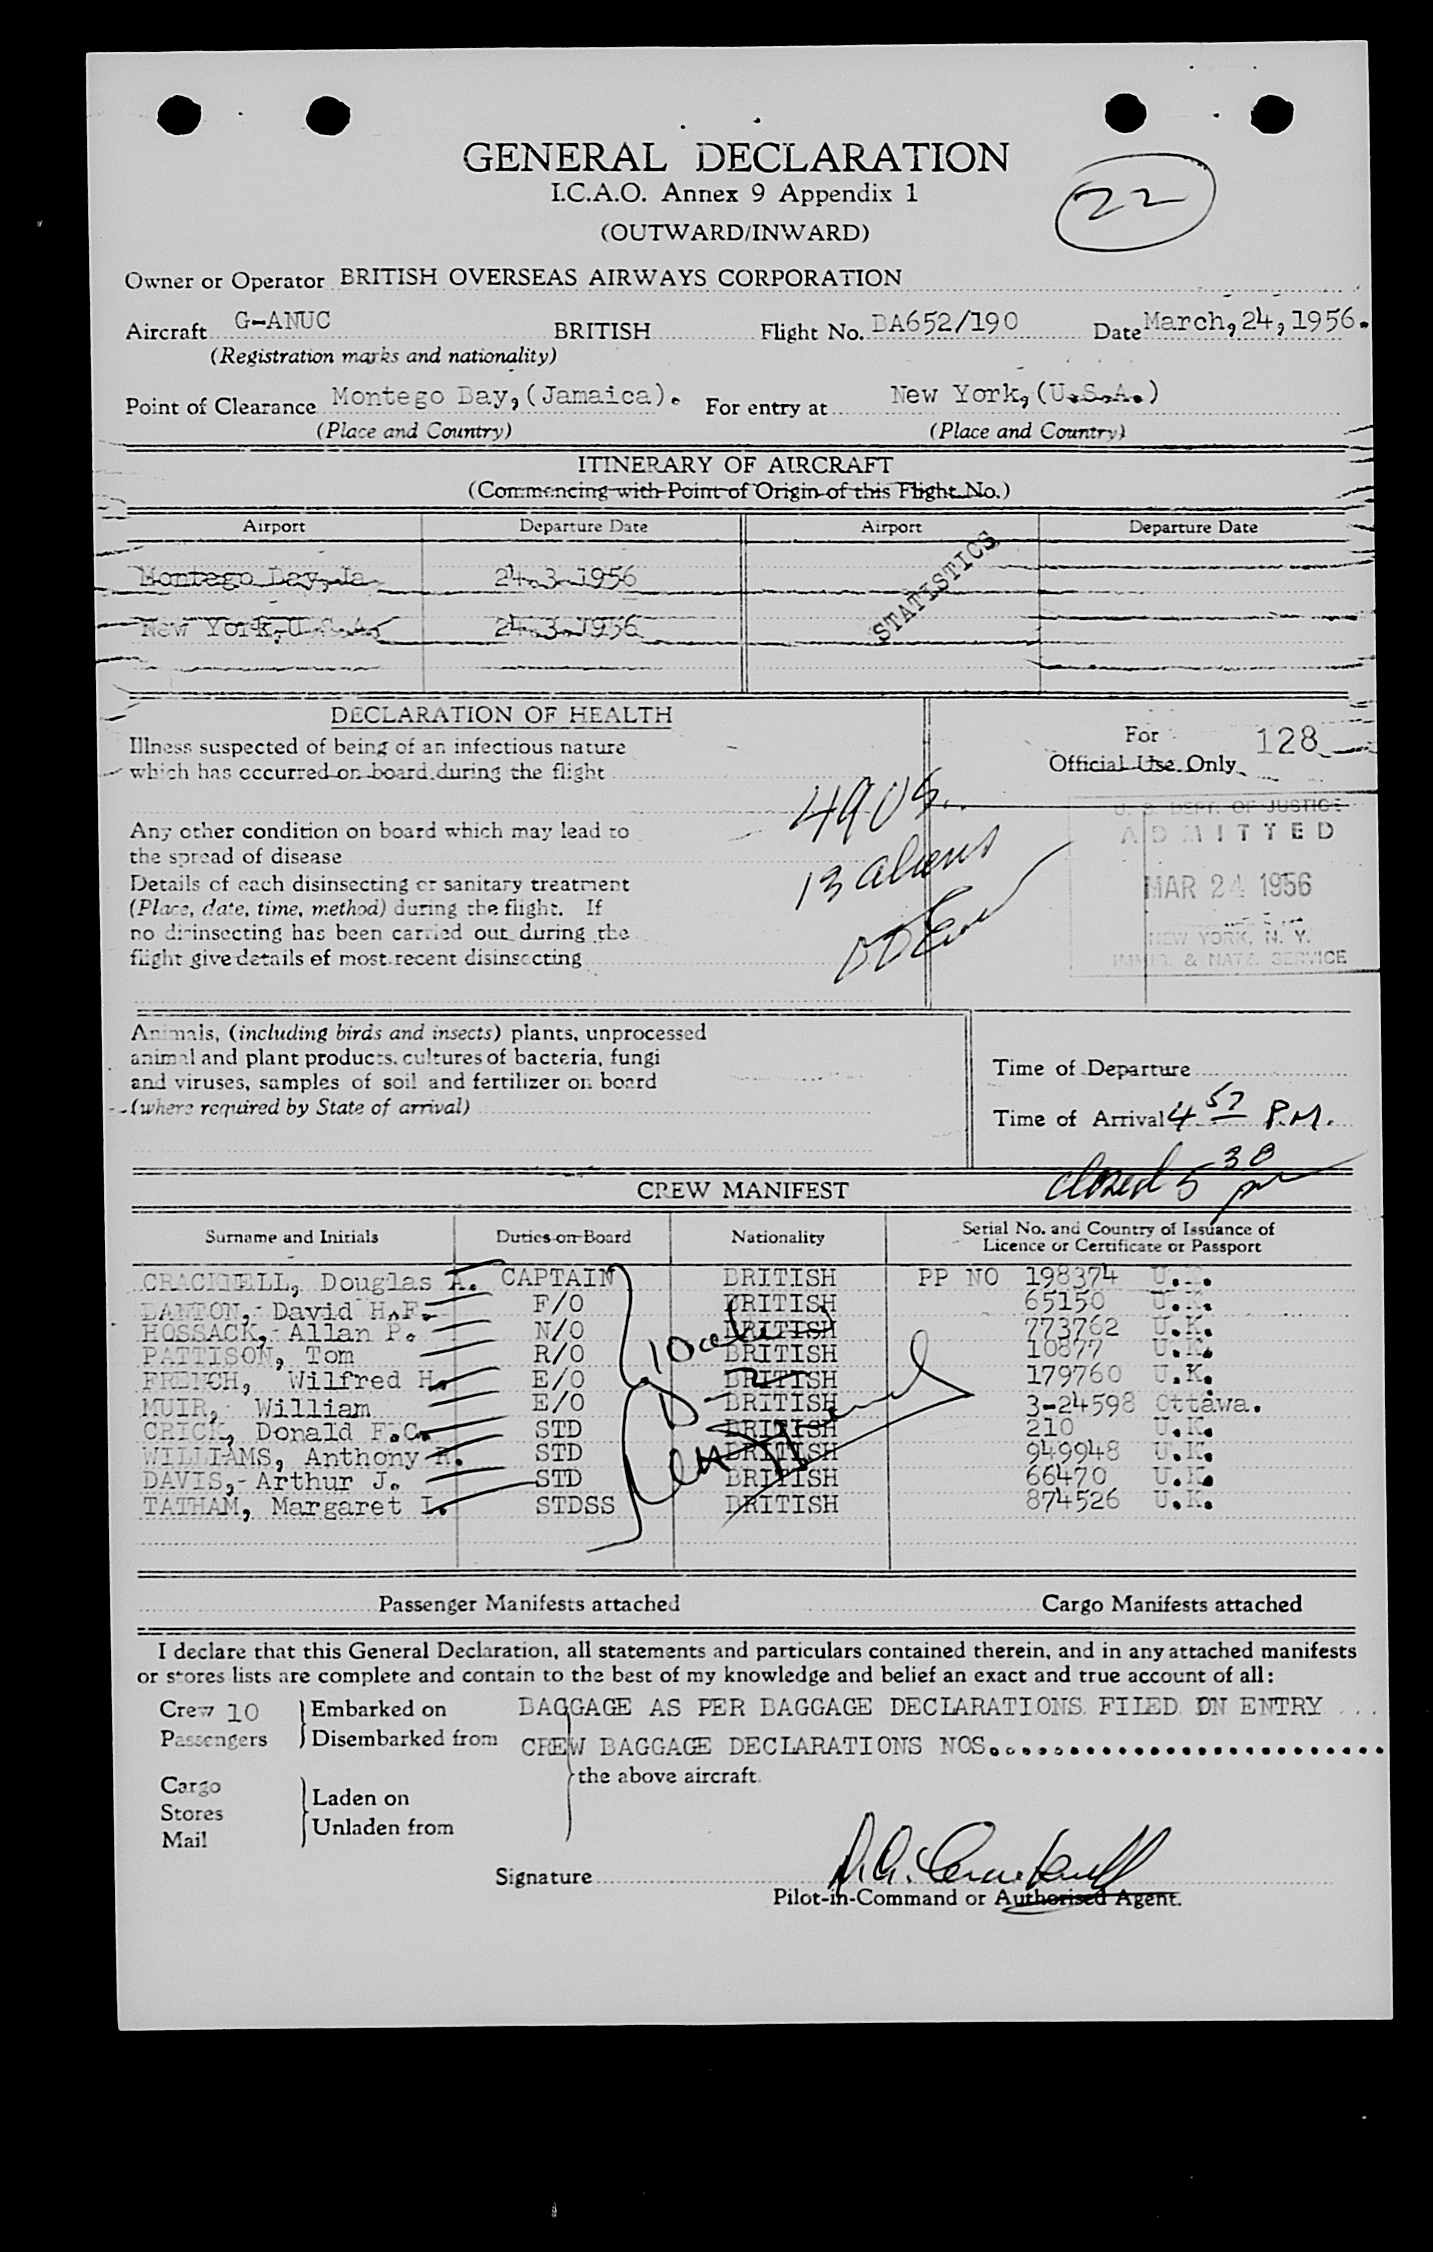 GENERAL DECLARATION
I.C.A.O. Annex 9 Appendix 1
22
(OUTWARD/INWARD)
Owner or Operator BRITISH OVERSEAS AIRWAYS CORPORATION
Aircraft G-ANUC BRITISH Flight No. BA652/190 Date March, 24, 1956.
(Registration marks and nationality)
Point of Clearance Montego Bay, (Jamaica). For entry at New York, (U.S.A.)
(Place and Country) (Place and Country)
ITINERARY OF AIRCRAFT
(Commencing with Point of Origin of this Flight No.)
Airport Departure Date Airport Departure Date
Montego Bay, Ja 24.3.1956
STATISTICS
New York, U.S.A. 24.3.1956
DECLARATION OF HEALTH
Illness suspected of being of an infectious nature
which has occurred on board during the flight
For
Official Use Only
128
Any other condition on board which may lead to
the spread of disease
Details of each disinsecting or sanitary treatment
(Place, date, time, method) during the flight. If
no disinsecting has been carried out during the
flight give details of most recent disinsecting
49 US
13 aliens
U. S. DEPT. OF JUSTICE
ADMITTED
MAR 24 1956
NEW YORK, N. Y.
IMMIG. & NATZ. SERVICE
Animals, (including birds and insects) plants, unprocessed
animal and plant products, cultures of bacteria, fungi
and viruses, samples of soil and fertilizer on board
(where required by State of arrival)
Time of Departure
Time of Arrival 4 57 P.M.
closed 5 30 pm
CREW MANIFEST
Surname and Initials Duties on Board Nationality Serial No. and Country of Issuance of
Licence or Certificate or Passport
CRACKNELL, Douglas A. CAPTAIN BRITISH PP NO 198374 U.K.
DANTON, David H.F. F/O BRITISH 65150 U.K.
HOSSACK, Allan P. N/O BRITISH 773762 U.K.
PATTISON, Tom R/O BRITISH 10877 U.K.
FRENCH, Wilfred H. E/O BRITISH 179760 U.K.
MUIR, William E/O BRITISH 3-24598 Ottawa.
CRICK, Donald F.C. STD BRITISH 210 U.K.
WILLIAMS, Anthony R. STD BRITISH 949948 U.K.
DAVIS, Arthur J. STD BRITISH 66470 U.K.
TATHAM, Margaret L. STDSS BRITISH 874526 U.K.
Passenger Manifests attached Cargo Manifests attached
I declare that this General Declaration, all statements and particulars contained therein, and in any attached manifests
or stores lists are complete and contain to the best of my knowledge and belief an exact and true account of all:
Crew 10 Embarked on BAGGAGE AS PER BAGGAGE DECLARATIONS FILED ON ENTRY
Passengers Disembarked from CREW BAGGAGE DECLARATIONS NOS.
the above aircraft.
Cargo
Stores
Mail
Laden on
Unladen from
Signature D.A. Cracknell
Pilot-in-Command or Authorised Agent.